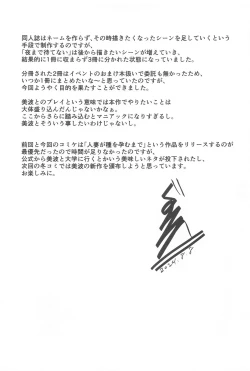 同人誌はネームを作らず、その時描きたくなったシーンを足していくという
手段で制作するのですが、
「夜まで待てない」は後から描きたいシーンが増えていき、
結果的に1冊に収まらず3冊に分かれた状態になっていました。
分冊された2冊はイベントのおまけ本扱いで委託も無かったため、
いつか1冊にまとめたいな～と思っていたのですが、
今回ようやく目的を果たすことができました。
美波とのプレイという意味では本作でやりたいことは
大体盛り込んだんじゃないかなぁ。
ここからさらに踏み込むとマニアックになりすぎるし、
美波とそういう事したいわけじゃないし。
前回と今回のコミケは「人妻が種を孕むまで」という作品をリリースするのが
最優先だったので時間が足りなかったのですが、
公式から美波と大学に行くとかいう美味しいネタが投下されたし、
次回の冬コミでは美波の新作を頒布しようと思っています。
お楽しみに。